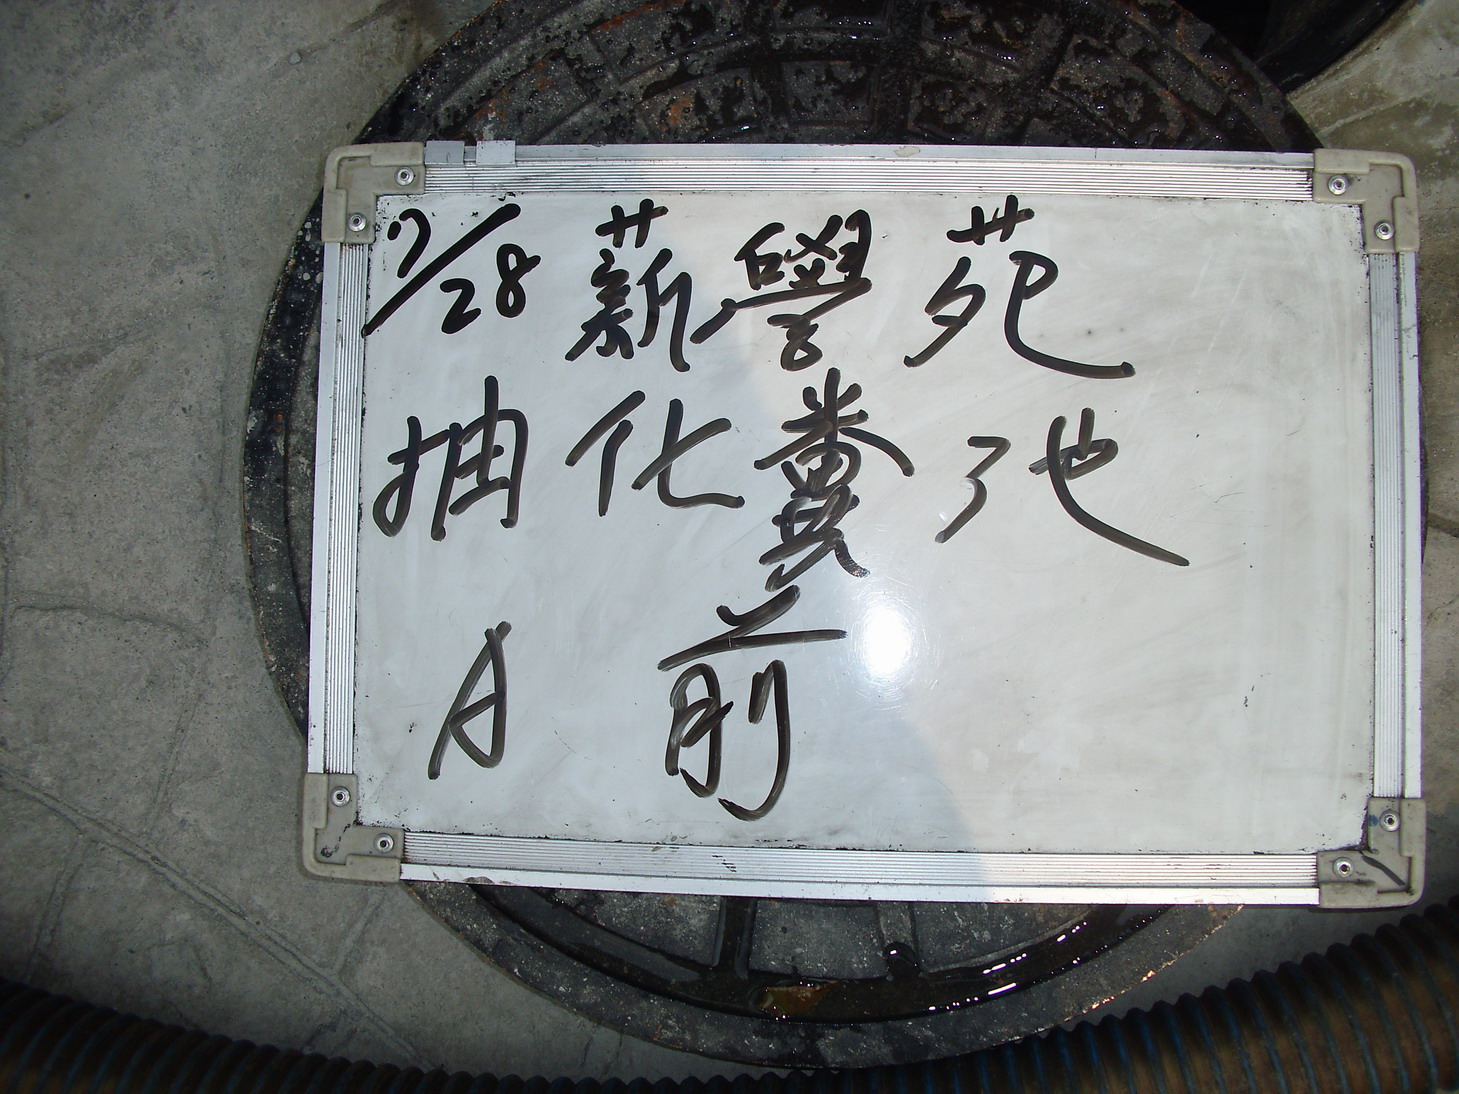 7/28 薪學苑
抽化糞池
A 前